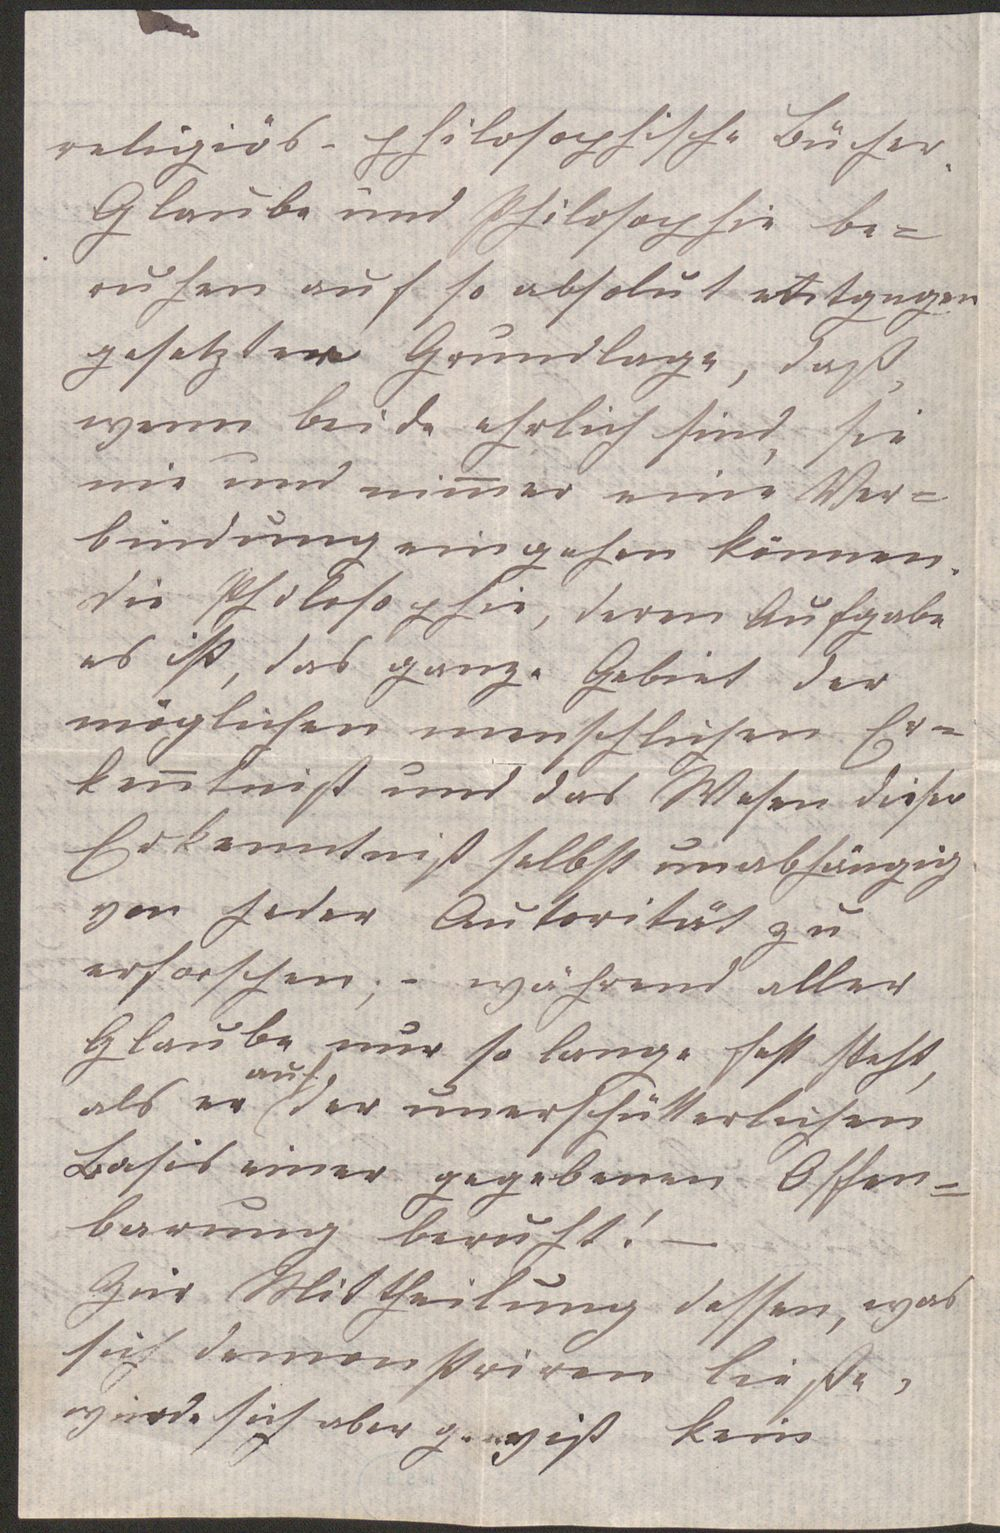 religiös-philosophische Bücher.
Glaube und Philosophie be=
ruhen auf so absolut entgegen
gesetzter Grundlage, daß,
wenn beide ehrlich sind, sie
nie und nim̅er eine Ver=
bindung eingehen können.
Die Philosophie, deren Aufgabe
es ist, das ganze Gebiet der
möglichen menschlichen Er=
ken̅tniß und das Wesen dieser
Erkenntniß selbst unabhängig
von jeder Autorität zu
erforschen; - während aller
Glaube nur so lange fest steht,
als er auf der unerschütterlichen
Basis einer gegebenen Offen=
barung beruht! —
Zur Mittheilung dessen, was
sich demonstriren ließe,
würde sich aber gewiß kein